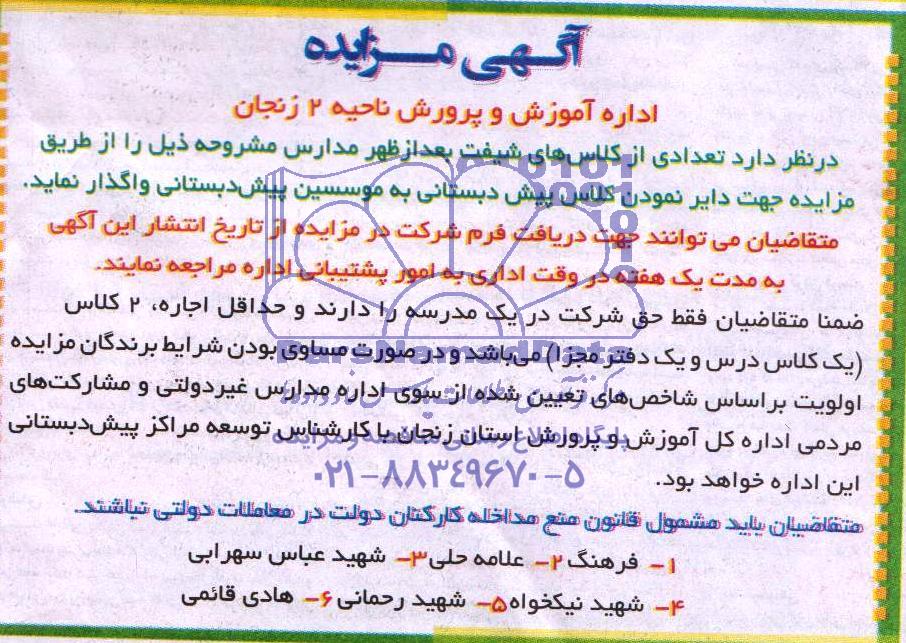 آگهی مزایده
اداره آموزش و پرورش ناحیه ۲ زنجان
درنظر دارد تعدادی از کلاس‌های شیفت بعدازظهر مدارس مشروحه ذیل را از طریق
مزایده جهت دایر نمودن کلاس پیش دبستانی به موسسین پیش‌دبستانی واگذار نماید.
متقاضیان می توانند جهت دریافت فرم شرکت در مزایده از تاریخ انتشار این آگهی
به مدت یک هفته در وقت اداری به امور پشتیبانی اداره مراجعه نمایند.
ضمنا متقاضیان فقط حق شرکت در یک مدرسه را دارند و حداقل اجاره، ۲ کلاس
(یک کلاس درس و یک دفتر مجزا) می‌باشد و در صورت مساوی بودن شرایط برندگان مزایده
اولویت براساس شاخص‌های تعیین شده از سوی اداره مدارس غیردولتی و مشارکت‌های
مردمی اداره کل آموزش و پرورش استان زنجان با کارشناس توسعه مراکز پیش‌دبستانی
این اداره خواهد بود.
۰۲۱-۸۸۳۴۹۶۷۰-۵
متقاضیان باید مشمول قانون منع مداخله کارکنان دولت در معاملات دولتی نباشند.
۱- فرهنگ ۲- علامه حلی ۳- شهید عباس سهرابی
۴- شهید نیکخواه ۵- شهید رحمانی ۶- هادی قائمی